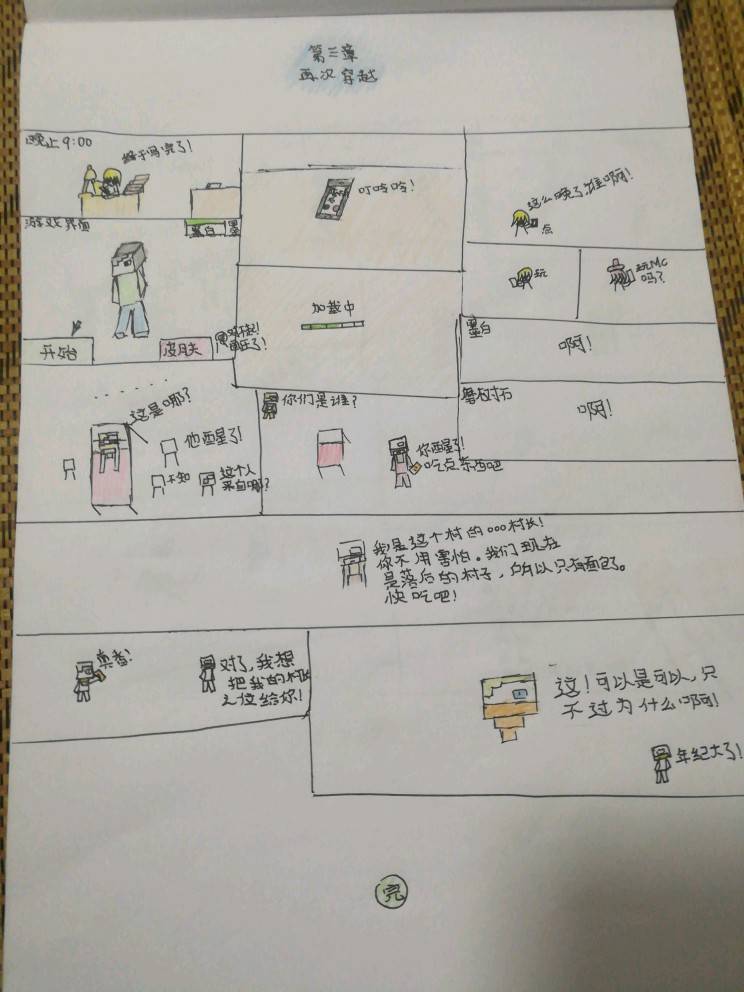 第三章
再次穿越
晚上9:00
终于写完了!
叮呤呤!
这么晚了,谁啊!
点
游戏界面
墨白
墨
开始
皮肤
对不起!
画歪了!
加载中
玩
玩MC
吗?
墨白
啊!
啊!
这是哪?
他醒了!
不知
这个人
来自哪?
你们是谁?
你醒了!
吃点东西吧
我是这个村的ooo村长!
你不用害怕。我们现在
是落后的村子,所以只有面包了。
快吃吧!
真香!
对了,我想
把我的村长
之位给你!
这!可以是可以,只
不过为什么啊!
年纪大了!
完